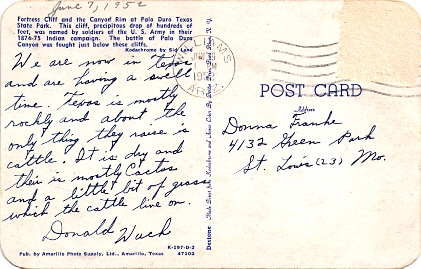 June 7, 1952
Fortress Cliff and the Canyon Rim at Palo Duro Texas
State Park. This cliff, precipitous drop of hundreds of
feet, was named by soldiers of the U. S. Army in their
1874-75 Indian campaign. The battle of Palo Duro
Canyon was fought just below these cliffs.
Kodachrome by Sid Lane
We are now in Texas
and are having a swell
time. Texas is mostly
rockly and about the
only thing they raise is
cattle. It is dry and
their is mostly Cactus
and a little bit of grass
which the cattle live on.
Donald Wach
K-197-D-2
Pub. by Amarillo Photo Supply, Ltd., Amarillo, Texas 47202
WILLIAMS
ARIZ.
POST CARD
Address
Donna Franke
4132 Green Park
St. Louis (23) Mo.